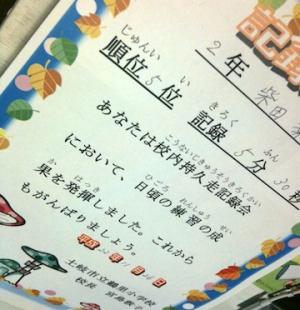 記録
2年 柴田
じゅんい い きろく ふん
順位 5位 記録 5分 30秒
こうないじきゅうそうきろくかい
あなたは校内持久走記録会
ひごろ れんしゅう せい
において、日頃の練習の成
か はっき
果を発揮しました。これから
もがんばりましょう。
土岐市立
校長